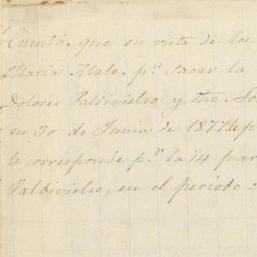 Cuenta, que en vista de los
Maria Malo. pª sacar la
Dolores Valdivielso y
en 30 de Junio de 1877 de p
le corresponde pª la 1/4 par
Valdivielso, en el periodo